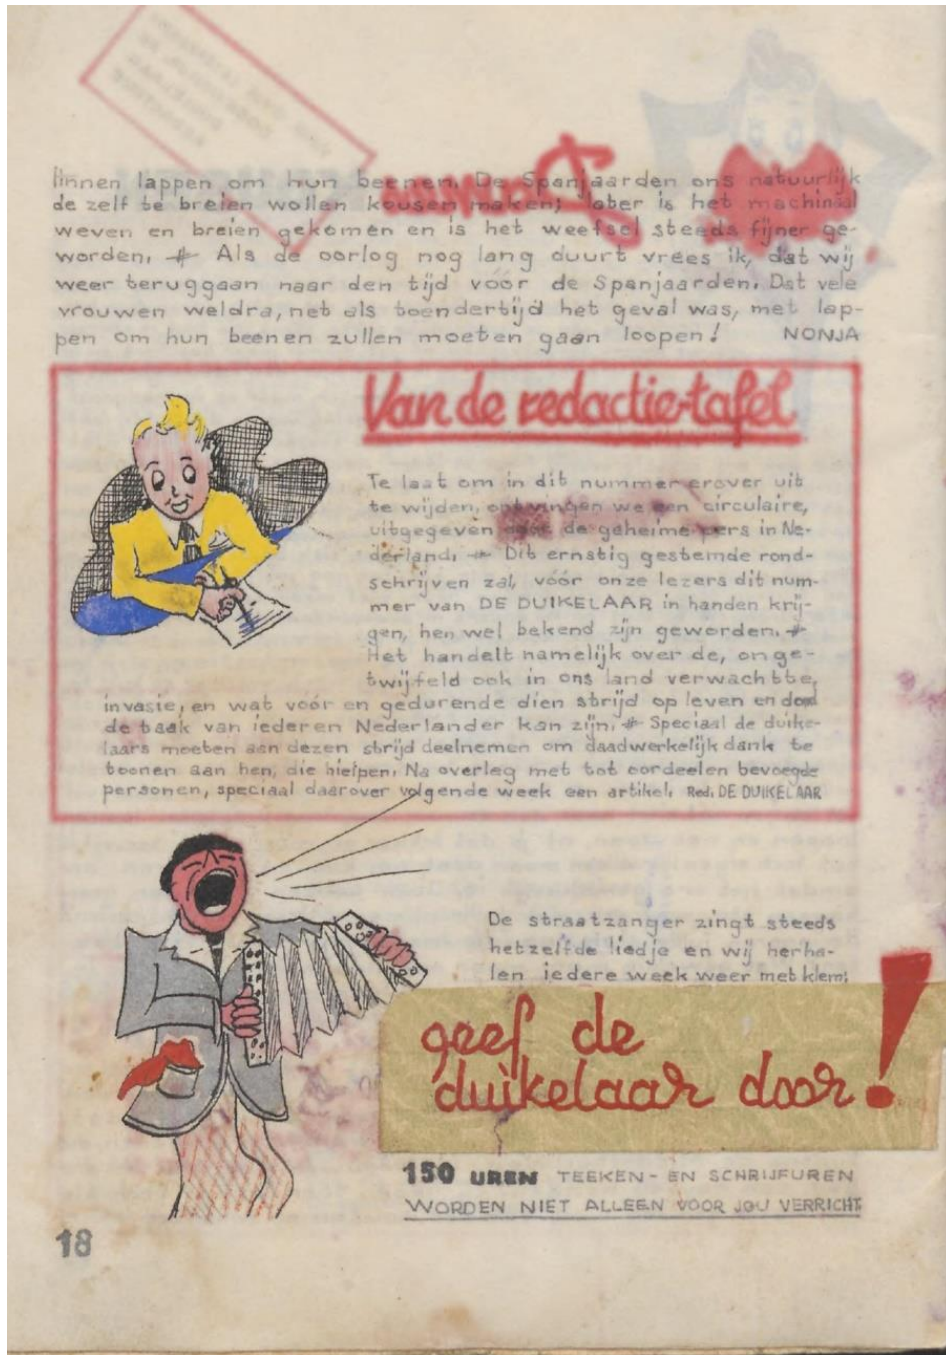 linnen lappen om hun beenen. De Spanjaarden ons natuurlijk
de zelf te breien wollen kousen maken; later is het machinaal
weven en breien gekomen en is het weefsel steeds fijner ge-
worden. # Als de oorlog nog lang duurt vrees ik, dat wij
weer teruggaan naar den tijd vóór de Spanjaarden. Dat vele
vrouwen weldra, net als toendertijd het geval was, met lap-
pen om hun beenen zullen moeten gaan loopen! NONJA
Van de redactie-tafel
Te laat om in dit nummer erover uit
te wijden, ontvingen we een circulaire,
uitgegeven door de geheime pers in Ne-
derland. # Dit ernstig gestemde rond-
schrijven zal, vóór onze lezers dit num-
mer van DE DUIKELAAR in handen krij-
gen, hen wel bekend zijn geworden. #
Het handelt namelijk over de, onge-
twijfeld ook in ons land verwachtte,
invasie, en wat vóór en gedurende dien strijd op leven en dood
de taak van iederen Nederlander kan zijn. # Speciaal de duike-
laars moeten aan dezen strijd deelnemen om daadwerkelijk dank te
toonen aan hen, die hielpen. Na overleg met tot oordeelen bevoegde
personen, speciaal daarover volgende week een artikel. Red. DE DUIKELAAR
De straatzanger zingt steeds
hetzelfde liedje en wij herha-
len iedere week weer met klem:
geef de
duikelaar door!
150 UREN TEEKEN- EN SCHRIJFUREN
WORDEN NIET ALLEEN VOOR JOU VERRICHT
18